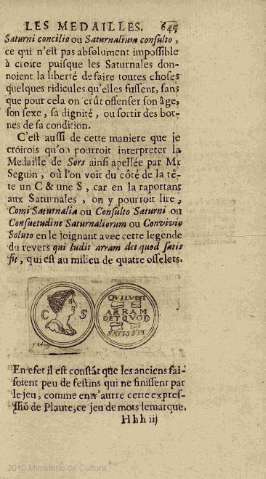 LES MEDAILLES. 645
Saturni concilio ou Saturnalium consulto,
ce qui n'est pas absolument impossible
à croire puisque les Saturnales don-
noient la liberté de faire toutes choses
quelques ridicules qu'elles fussent, sans
que pour cela on crût offenser son âge,
son sexe, sa dignité, ou sortir des bor-
nes de sa condition.
C'est aussi de cette maniere que je
croirois qu'on pourroit interpreter la
Medaille de Sors ainsi apellée par Mr
Seguin, où l'on voit du côté de la tê-
te un C & une S, car en la raportant
aux Saturnales, on y pourroit lire,
Comi Saturnalia ou Consulto Saturni ou
Consuetudine Saturnaliorum ou Convivio
Soluto en le joignant avec cette legende
du revers qui ludit arram det quod satis
sit, qui est au milieu de quatre osselets.
C S
QVI LVDIT
ARRAM
DET QVOD
SATIS SIT
En efet il est constãt que les anciens fai-
soient peu de festins qui ne finissent par
le jeu, comme entr'autre cette expres-
siõ de Plaute, ce jeu de mots le marque.
Hhh iij
2010 Ministerio de Cultura